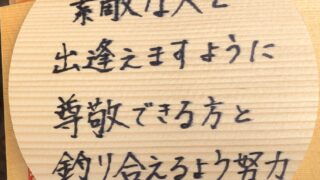 素敵な人と
出逢えますように
尊敬できる方と
釣り合えるよう努力